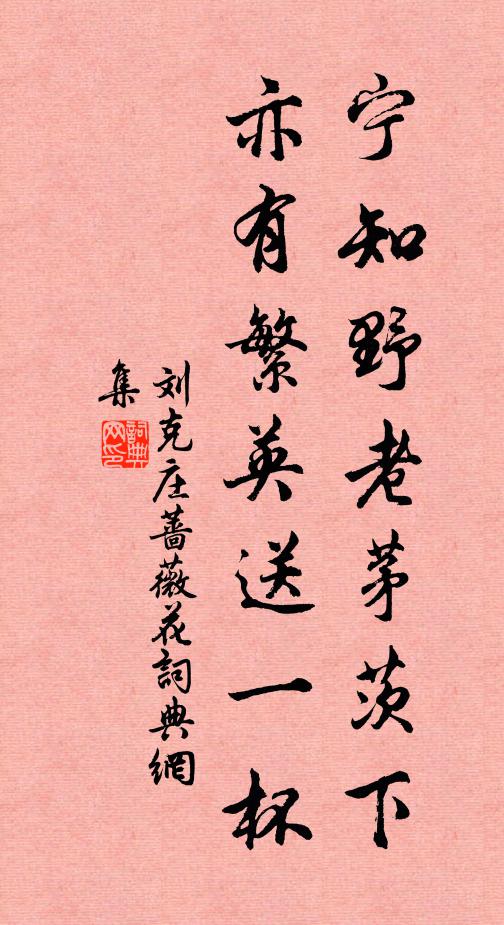 宁知野老茅茨下
亦有繁英送一杯
刘克庄蔷薇花詞典網
集
詞典
网印